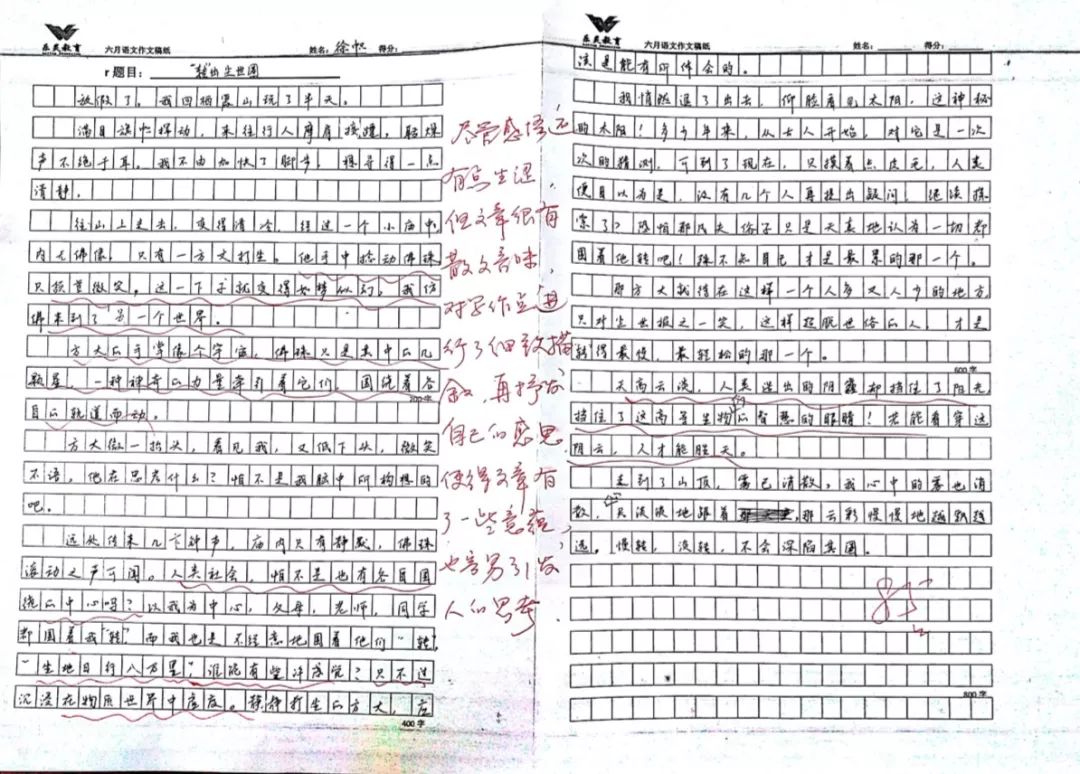 乐灵教育
六月语文作文稿纸 姓名：徐帆 得分：
r 题目： “转”出尘世圈
放假了。我回栖霞山玩了半天。
满目旗帜挥动，来往行人摩肩接踵，聒噪
声不绝于耳。我不由加快了脚步，想寻得一点
清静。
往山上走去，变得清冷，经过一个小庙中，
内无佛像，只有一方丈打坐。他手中捻动佛珠，
只损首微笑。这一下子就变得如梦似幻，我仿
佛来到了另一个世界。
方丈的手掌像个宇宙，佛珠只是其中的几
颗星，一种神奇的力量牵引着它们，围绕着各
200字
自的轨道而动。
方丈微一抬头，看见我，又低下头，微笑
不语，他在思考什么？怕不是我脑中所构想的
吧。
远处传来几下钟声，庙内只有静默，佛珠
滚动之声可闻。人类社会，怕不是也有各自围
绕的中心吗？以我为中心，父母，老师，同学
都围着我“转”而我也是不经意地围着他们“转”，
“坐地日行八万里”谁能有些许感觉？只不过
沉浸在物质世界中度度。静静打坐的方丈，应
400字
尽管感悟还
有点生涩，
但文章很有
散文意味，
对写作点进
行了细致描
叙，再抒发
自己的感思
使得文章有
了一些意蕴，
也容易引发
人们思考
乐灵教育
六月语文作文稿纸 姓名： 得分：
该是能有所体会的。
我悄然退了出去，仰脸看见太阳，这神秘
的太阳！多少年来，从古人开始，对它是一次
次的猜测，可到了现在，只摸着点皮毛，人类
便自以为是，没有几个人再提出疑问，继续探
索了？恐怕那凡夫俗子只是天真地认有一切都
围着他转吧！殊不知自己才是最累的那一个。
那方丈就待在这样一个人多又人少的地方
只对尘世报之一笑，这样超脱世俗的人，才是
转得最慢，最轻松的那一个。
600字
天高云淡，人类造出的阴霾却挡住了阳光
挡住了这高等生物的智慧的眼睛！若能看穿这
阴云，人才能胜天。
走到了山顶，雾已消散，我心中的雾也消
散，只淡淡地跟着那云彩慢慢地越飘越
远。慢转，淡转，不会深陷其围。
85
800字